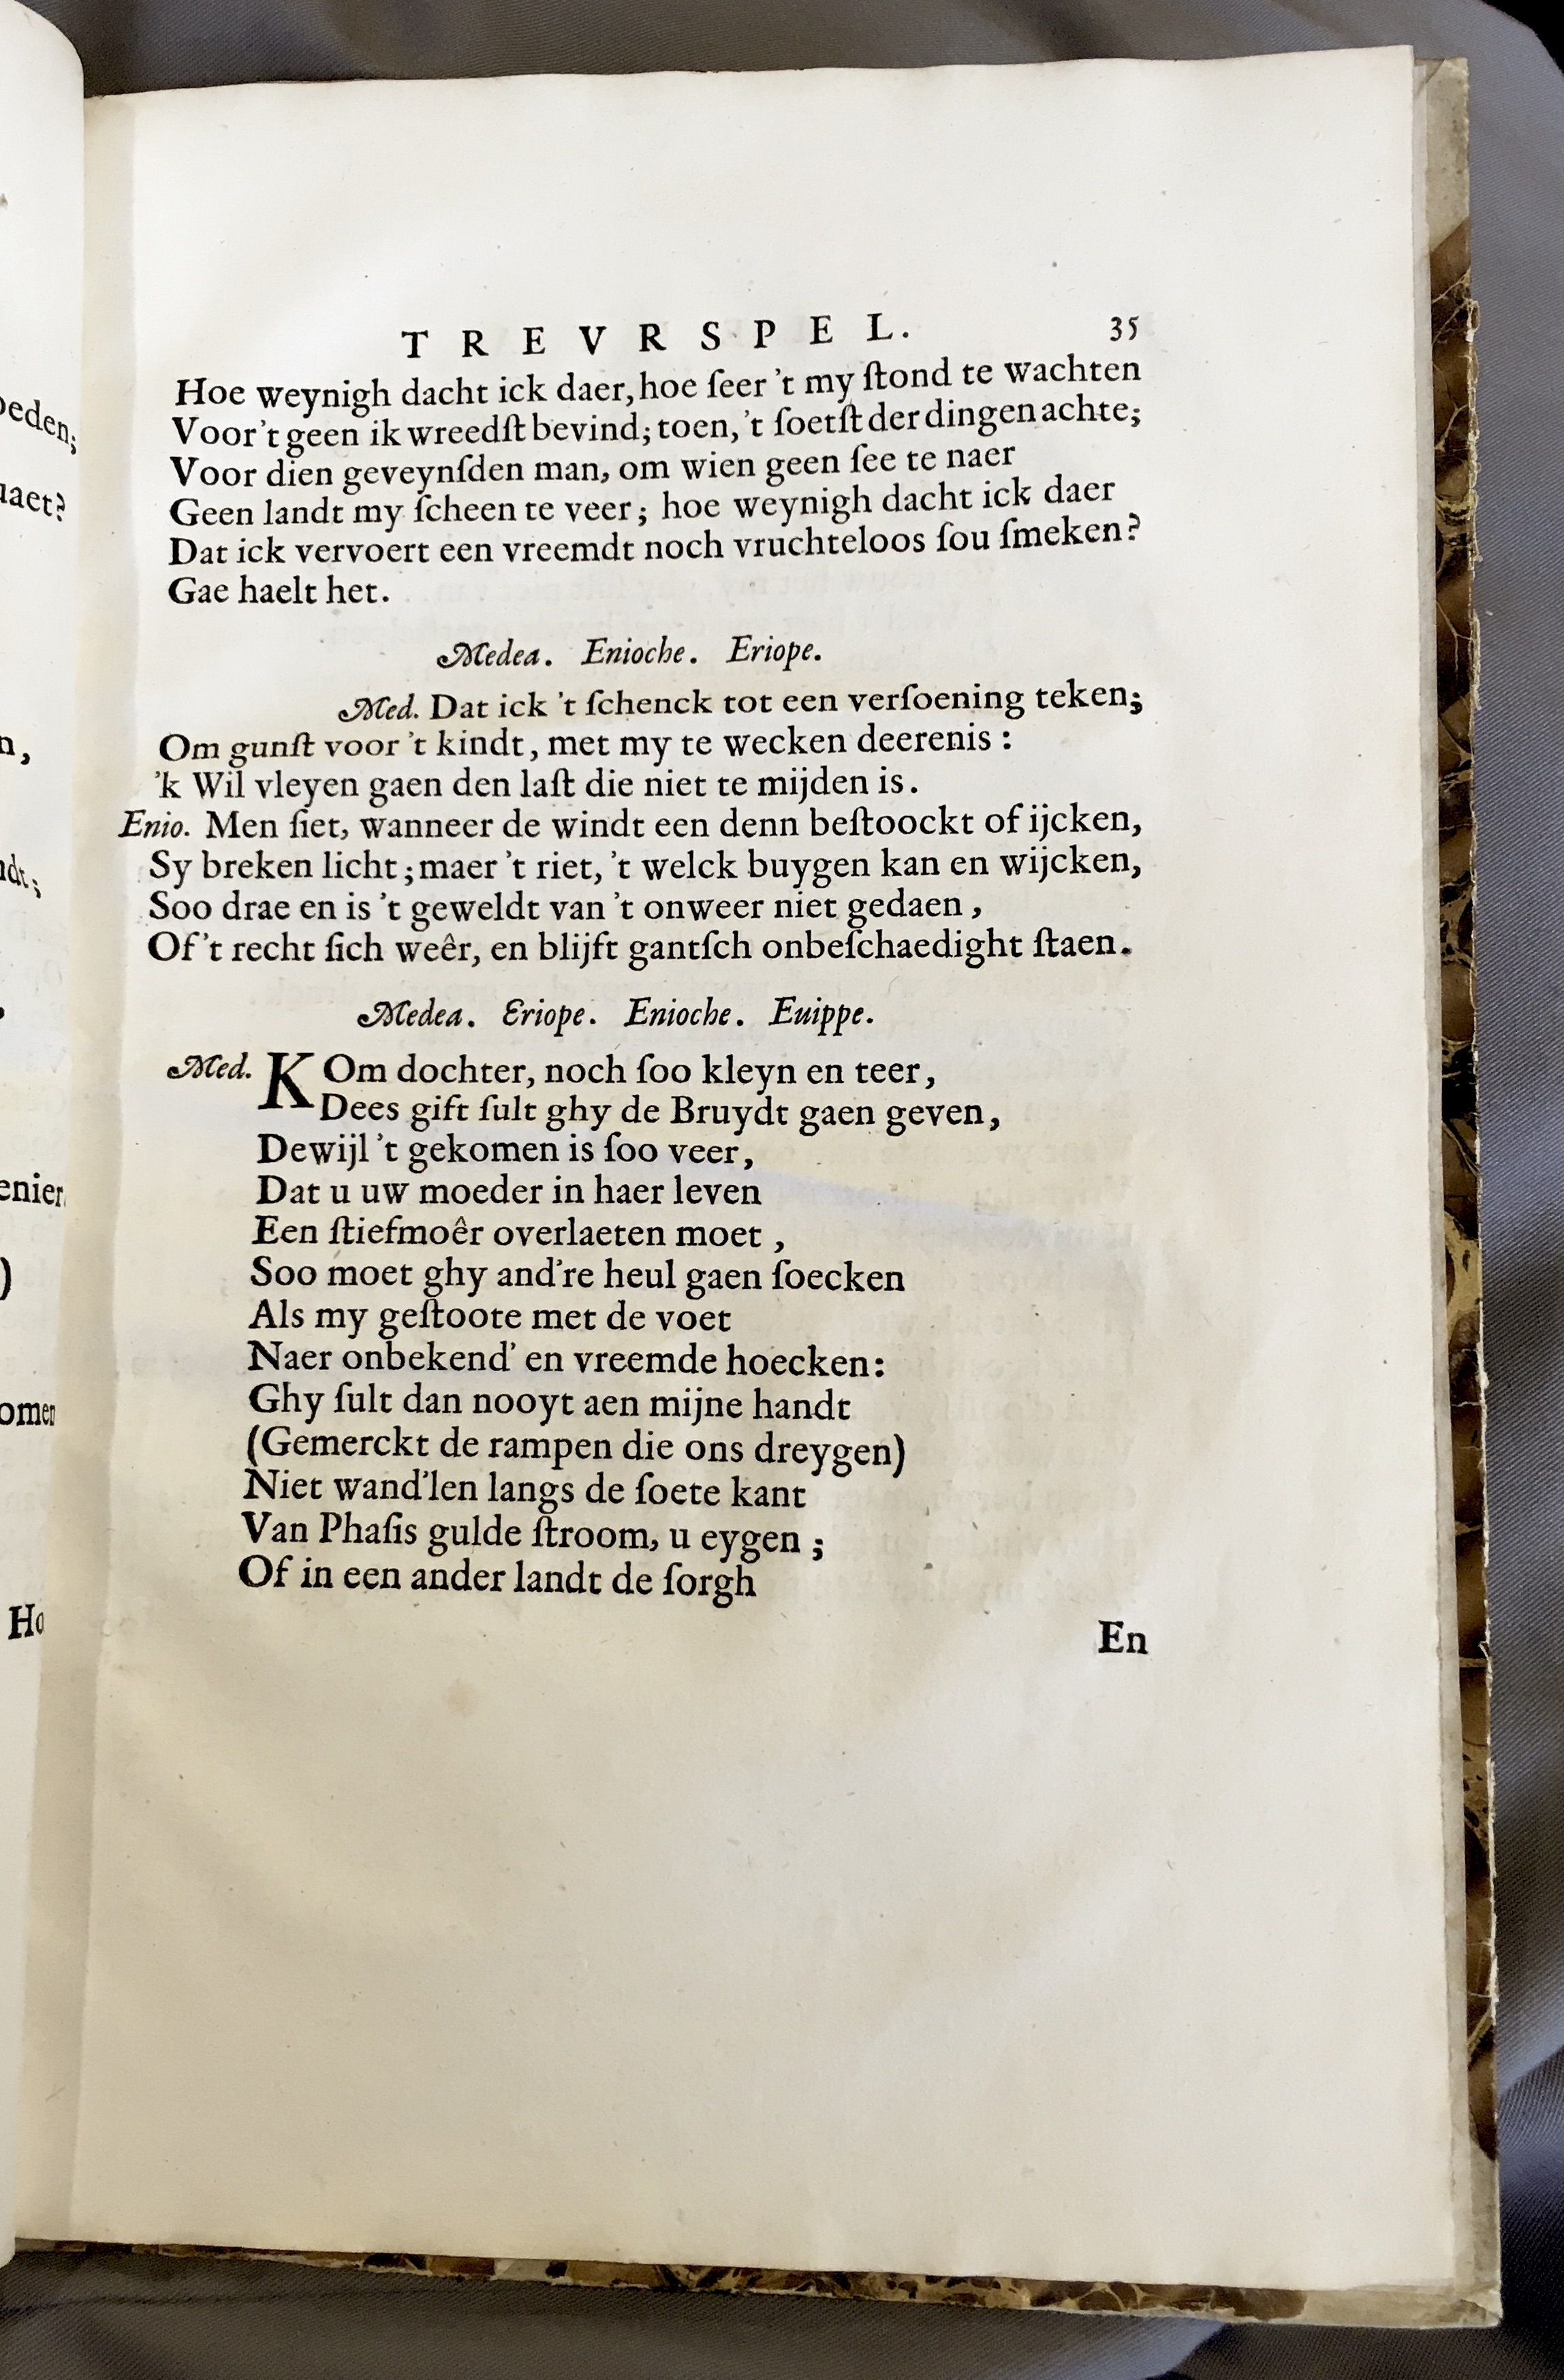 TREVRSPEL. 35
Hoe weynigh dacht ick daer, hoe ſeer 't my ſtond te wachten
Voor 't geen ik wreedſt bevind; toen, 't ſoetſt der dingen achte;
Voor dien geveynſden man, om wien geen ſee te naer
Geen landt my ſcheen te veer; hoe weynigh dacht ick daer
Dat ick vervoert een vreemdt noch vruchteloos ſou ſmeken?
Gae haelt het.
Medea. Enioche. Eriope.
Med. Dat ick 't ſchenck tot een verſoening teken;
Om gunſt voor 't kindt, met my te wecken deerenis:
'k Wil vleyen gaen den laſt die niet te mijden is.
Enio. Men ſiet, wanneer de windt een denn beſtoockt of ijcken,
Sy breken licht; maer 't riet, 't welck buygen kan en wijcken,
Soo drae en is 't geweldt van 't onweer niet gedaen,
Of 't recht ſich weêr, en blijft gantſch onbeſchaedight ſtaen.
Medea. Eriope. Enioche. Euippe.
Med. KOm dochter, noch ſoo kleyn en teer,
Dees gift ſult ghy de Bruydt gaen geven,
Dewijl 't gekomen is ſoo veer,
Dat u uw moeder in haer leven
Een ſtiefmoêr overlaeten moet,
Soo moet ghy and're heul gaen ſoecken
Als my geſtoote met de voet
Naer onbekend' en vreemde hoecken:
Ghy ſult dan nooyt aen mijne handt
(Gemerckt de rampen die ons dreygen)
Niet wand'len langs de ſoete kant
Van Phaſis gulde ſtroom, u eygen;
Of in een ander landt de ſorgh
En